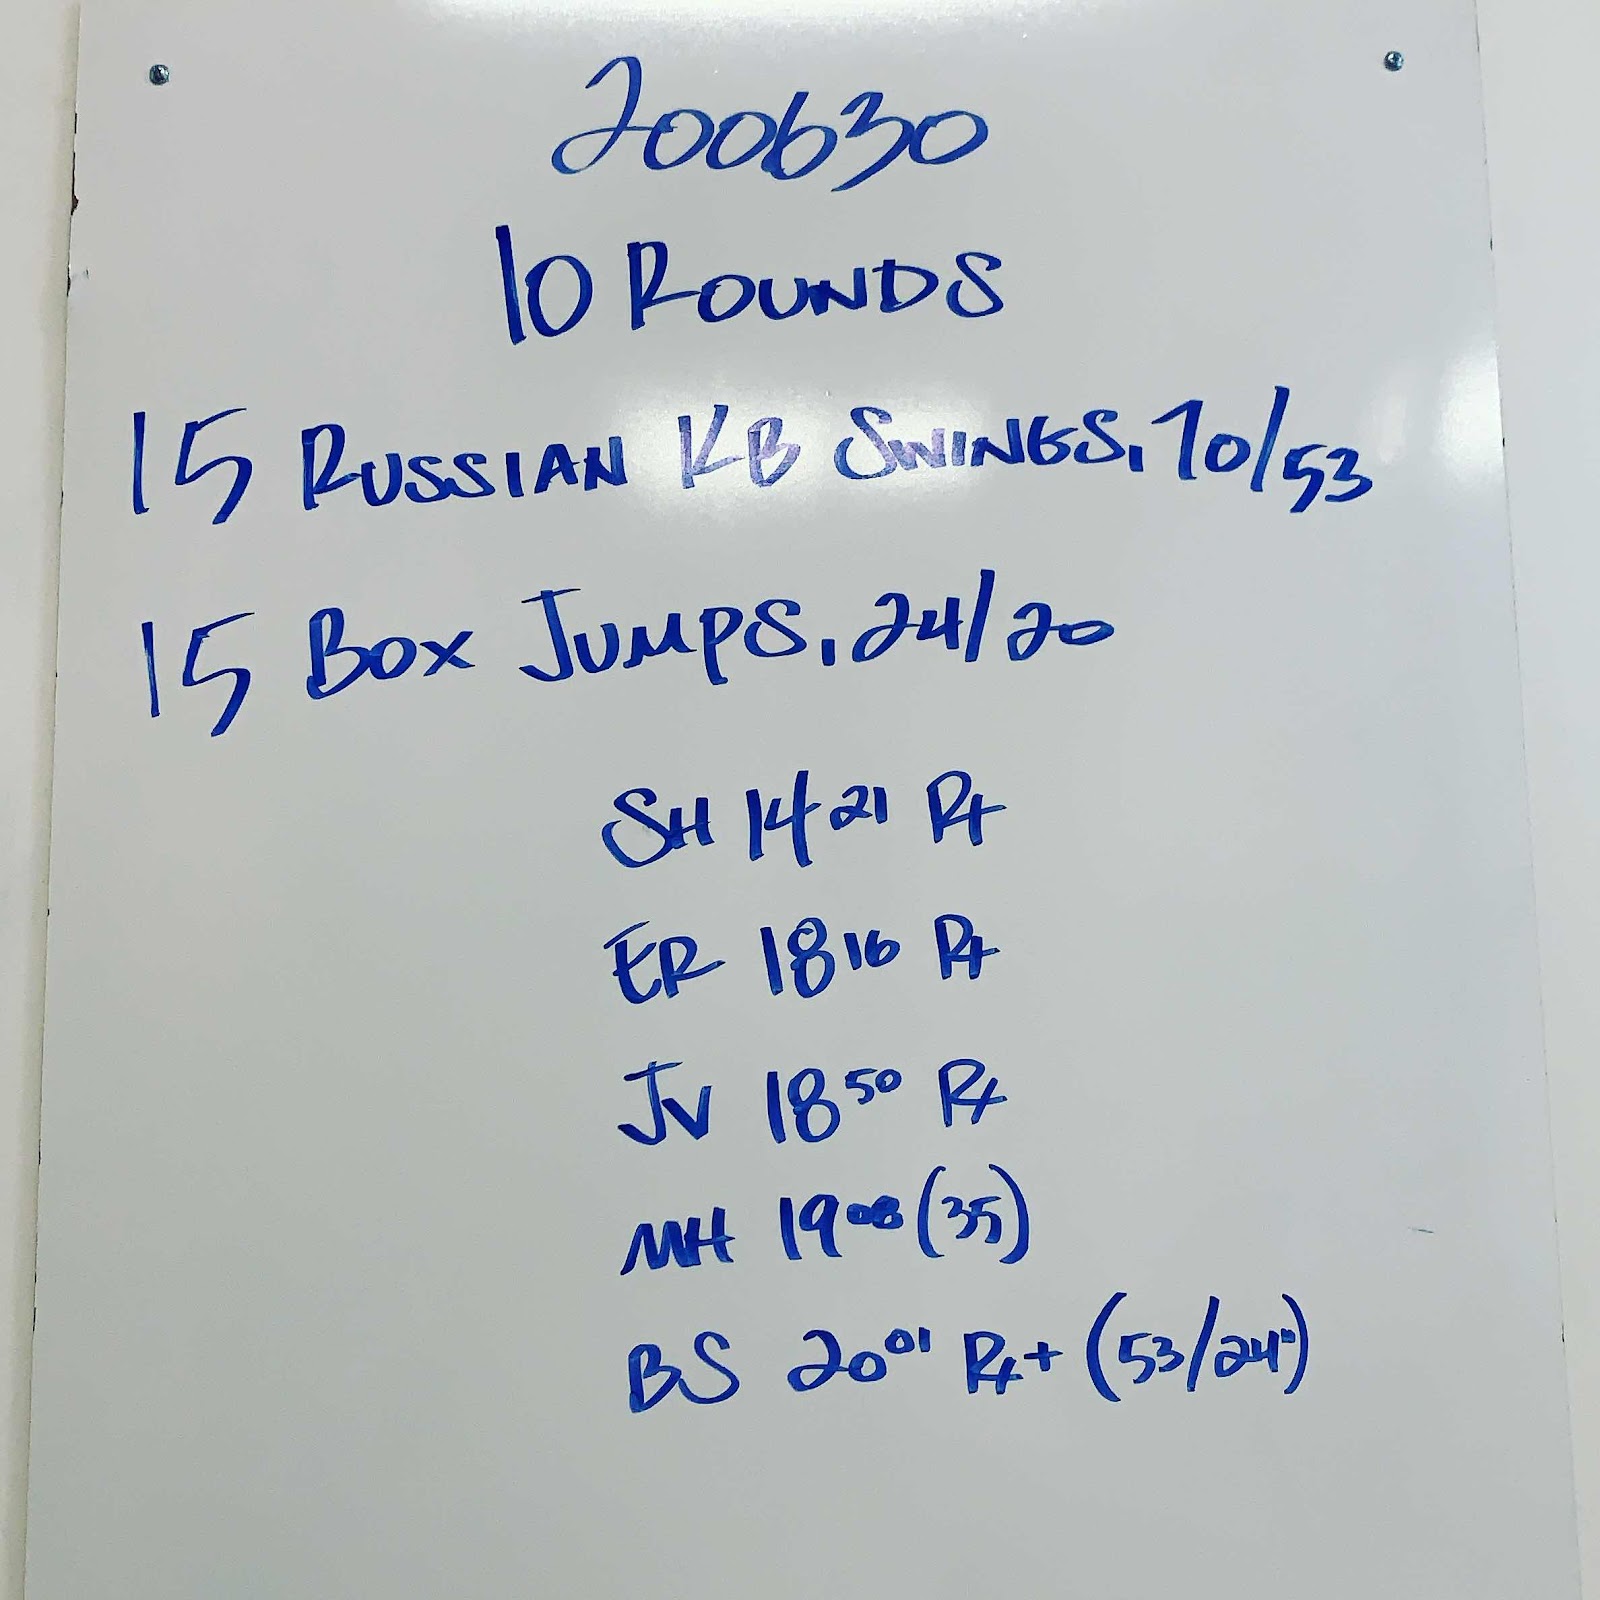 200630
10 ROUNDS
15 RUSSIAN KB SWINGS, 70/53
15 BOX JUMPS, 24/20
SH 14 21 Rx
ER 18 16 Rx
JV 18 50 Rx
MH 19 08 (35)
BS 20 01 Rx+ (53/24")